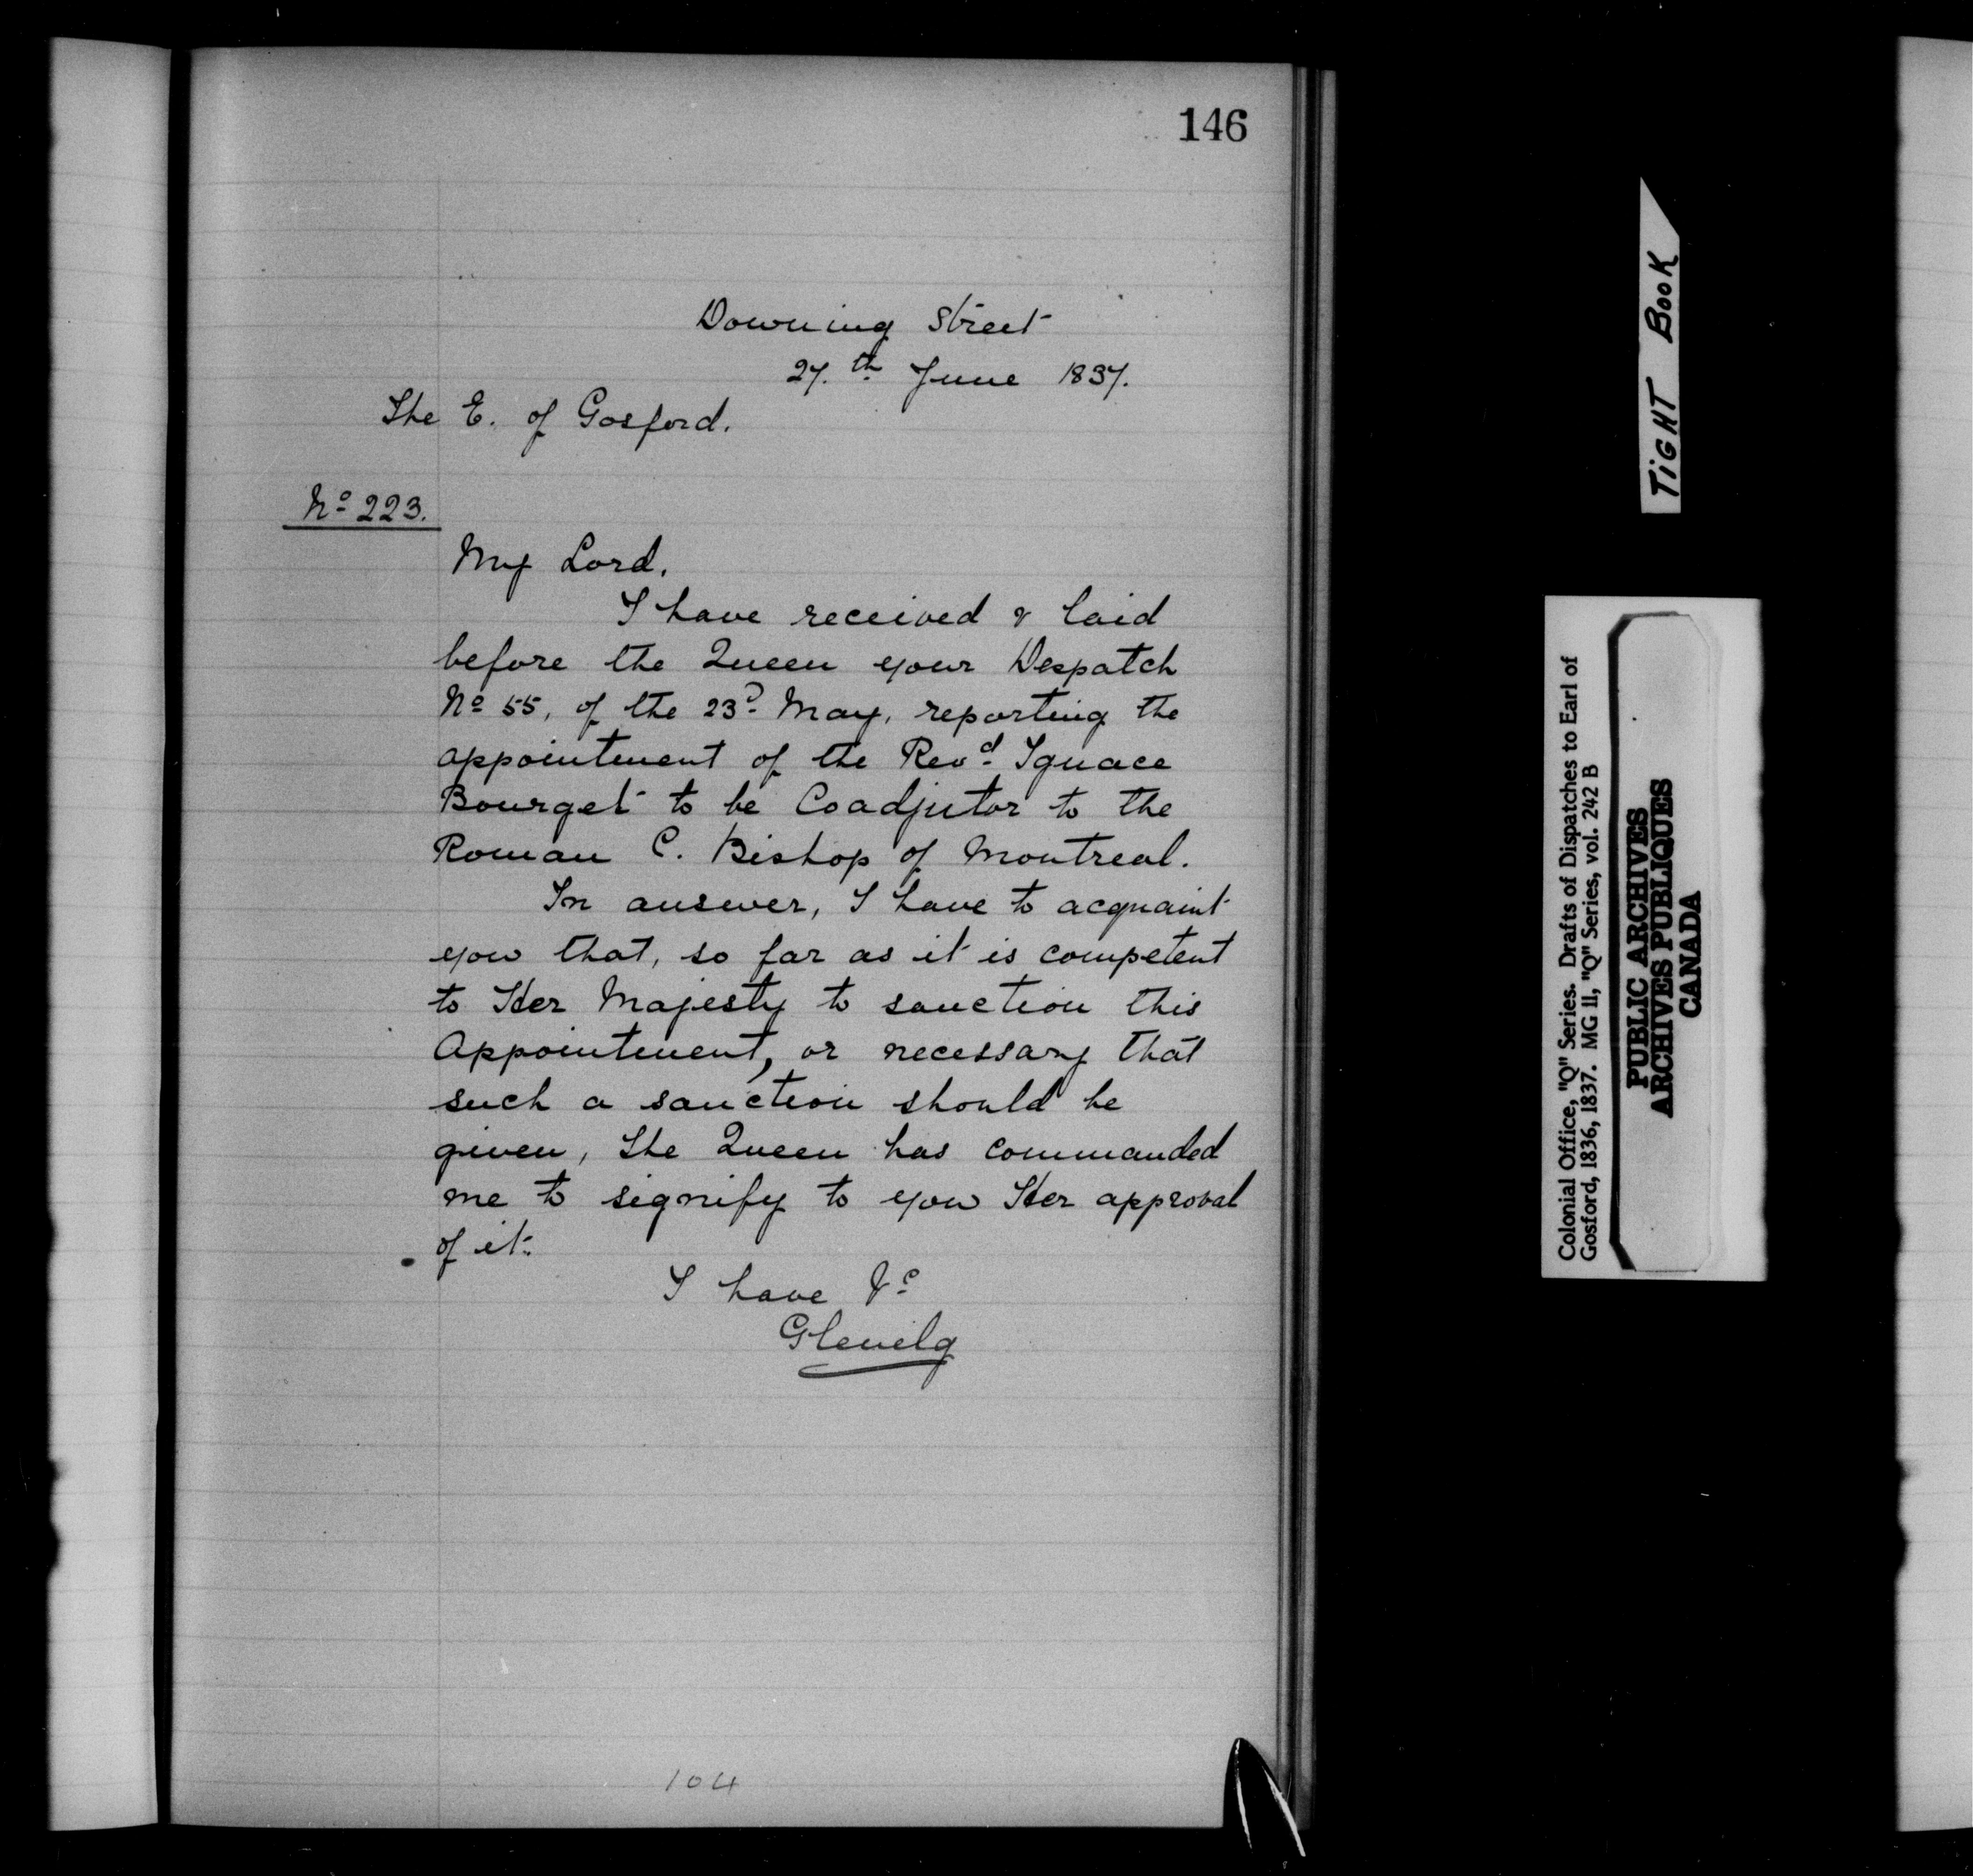 146
Downing Street
27.th June 1837.
The E. of Gosford.
No 223.
My Lord,
I have received & laid
before the Queen your Despatch
No 55, of the 23d May, reporting the
appointement of the Revd Ignace
Bourget to be Coadjutor to the
Roman C. Bishop of Montreal.
In answer, I have to acquaint
you that, so far as it is competent
to Her Majesty to sanction this
Appointement, or necessary that
such a sanction should be
given, The Queen has commanded
me to signify to you Her approval
of it.
I have &c
Glenelg
104
TIGHT BOOK
Colonial Office, "Q" Series. Drafts of Dispatches to Earl of
Gosford, 1836, 1837. MG 11, "Q" Series, vol. 242 B
PUBLIC ARCHIVES
ARCHIVES PUBLIQUES
CANADA